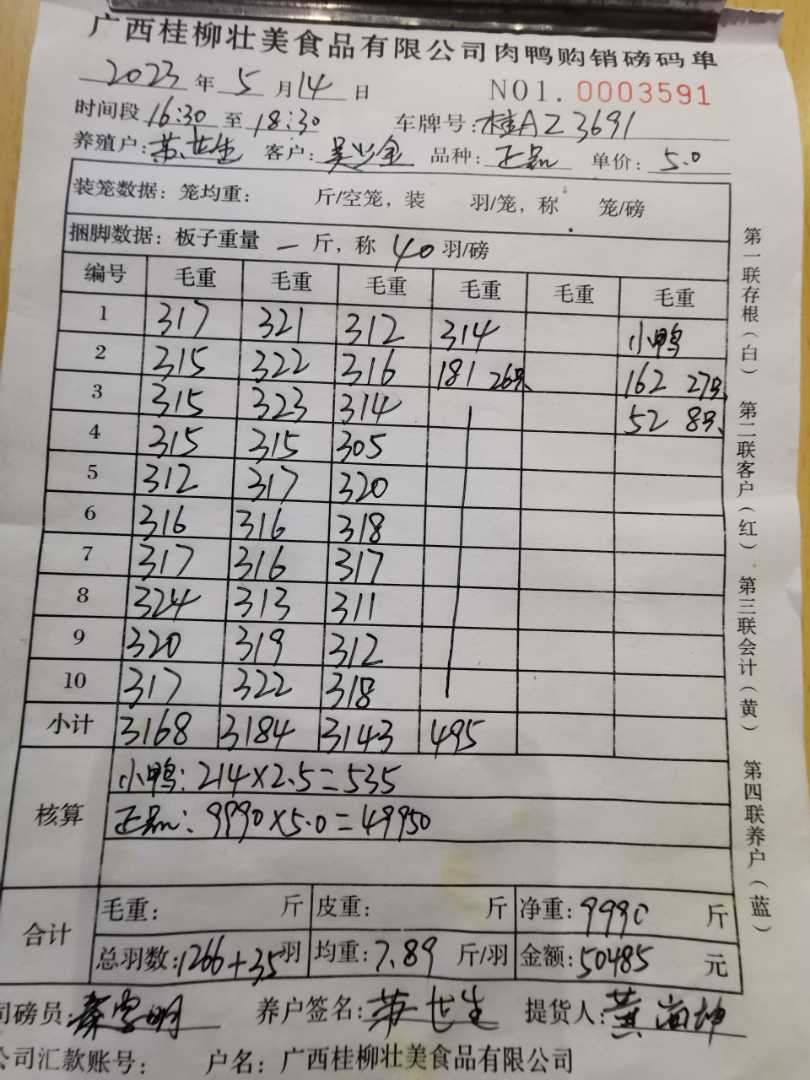 广西桂柳壮美食品有限公司肉鸭购销磅码单
2023 年 5 月 14 日 NO1. 0003591
时间段 16:30 至 18:30 车牌号: 桂AZ3691
养殖户: 苏世生 客户: 吴兴金 品种: 正品 单价: 5.0
装笼数据: 笼均重: 斤/空笼, 装 羽/笼, 称 笼/磅
捆脚数据: 板子重量 一 斤, 称 40 羽/磅
编号 毛重 毛重 毛重 毛重 毛重 毛重
1 317 321 312 314 小鸭
2 315 322 316 181 26只 162 27只
3 315 323 314 52 8只
4 315 315 305
5 312 317 320
6 316 316 318
7 317 316 317
8 324 313 311
9 320 319 312
10 317 322 318
小计 3168 3184 3143 495
核算 小鸭: 214×2.5=535
正品: 9990×5.0=49950
合计 毛重: 斤 皮重: 斤 净重: 9990 斤
总羽数: 1266+35 羽 均重: 7.89 斤/羽 金额: 50485 元
司磅员: 养户签名: 苏世生 提货人: 黄
公司汇款账号: 户名: 广西桂柳壮美食品有限公司
第一联存根(白) 第二联客户(红) 第三联会计(黄) 第四联养户(蓝)